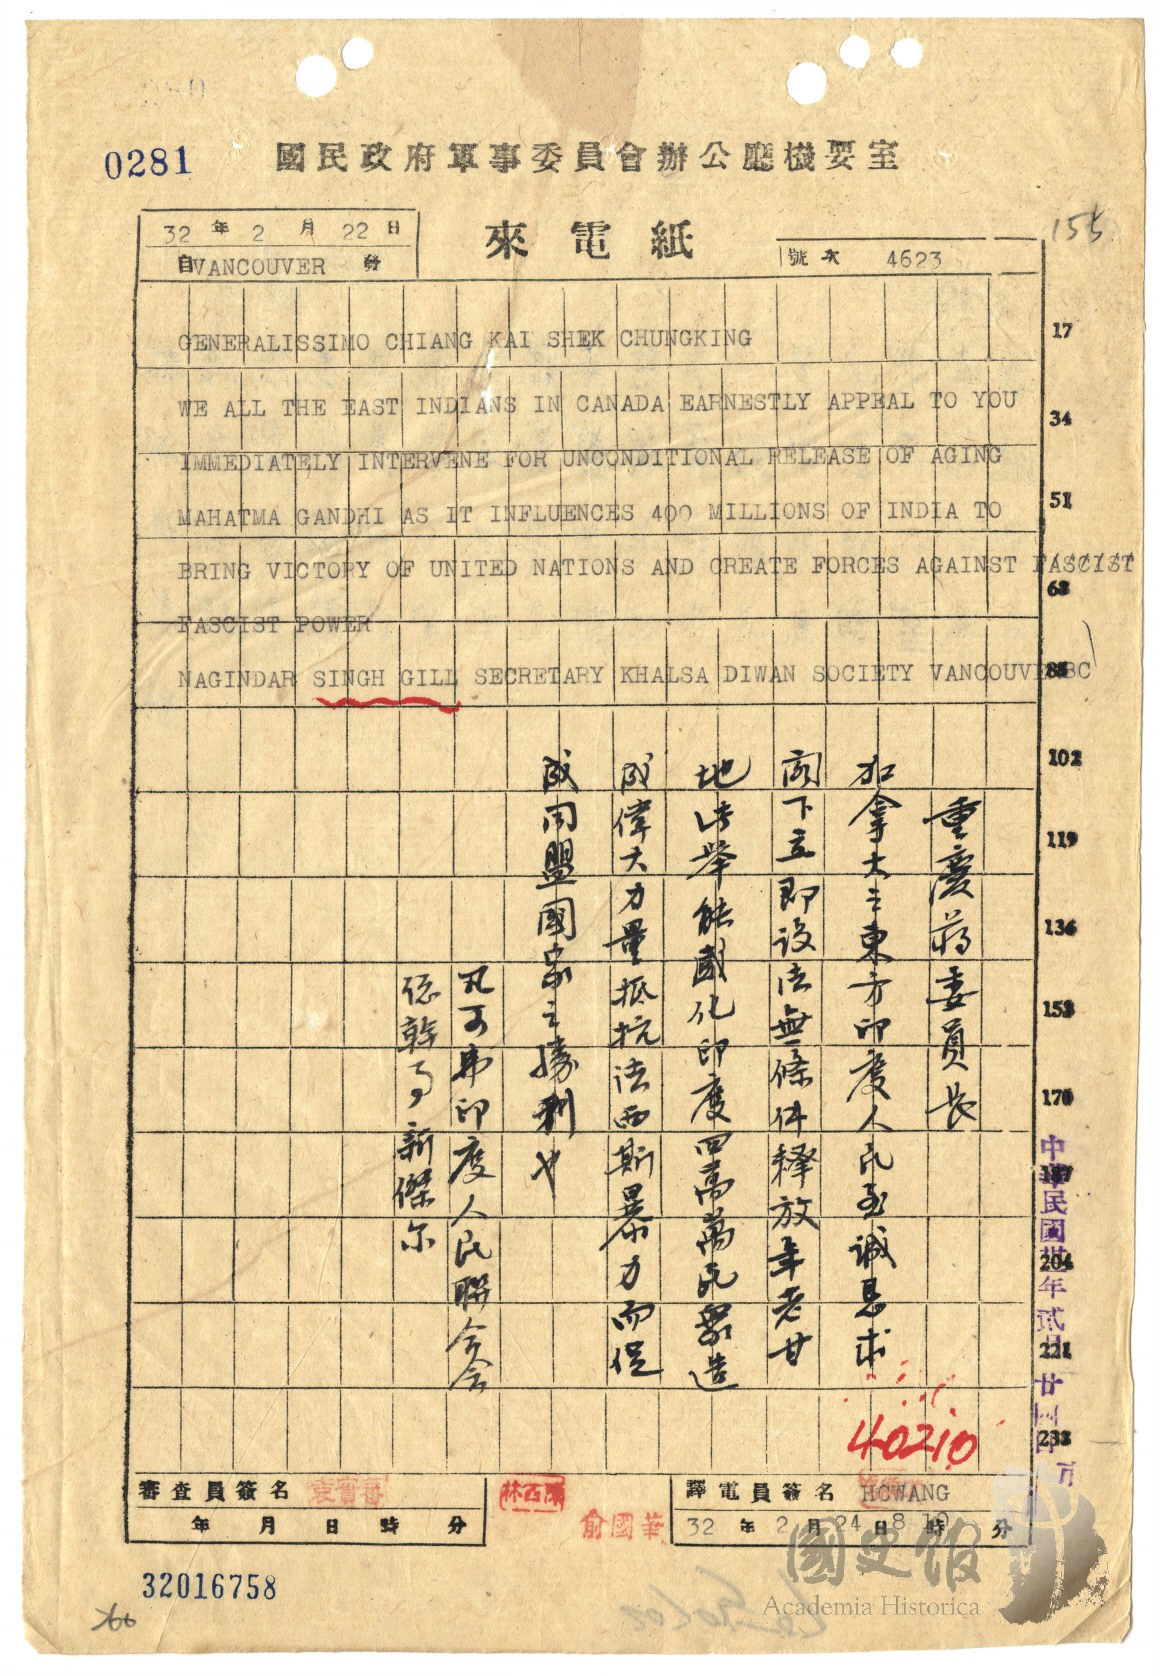 0281
國民政府軍事委員會辦公廳機要室
155
32年2月22日
自VANCOUVER發
來電紙
號次 4623
GENERALISSIMO CHIANG KAI SHEK CHUNGKING
17
WE ALL THE EAST INDIANS IN CANADA EARNESTLY APPEAL TO YOU
34
IMMEDIATELY INTERVENE FOR UNCONDITIONAL RELEASE OF AGING
MAHATMA GANDHI AS IT INFLUENCES 400 MILLIONS OF INDIA TO
51
BRING VICTORY OF UNITED NATIONS AND CREATE FORCES AGAINST FASCIST
68
FASCIST POWER
NAGINDAR SINGH GILL SECRETARY KHALSA DIWAN SOCIETY VANCOUVERBC
85
102
119
136
153
170
187
204
221
238
重慶蔣委員長
加拿大之東方印度人民至誠懇求
閣下立即設法無條件釋放年老甘
地此舉能感化印度四萬萬民眾造
成偉大力量抵抗法西斯暴力而促
成同盟國家之勝利也
印度人民聯合會
總幹事新傑尔
40210
中華民國卅二年貳月廿四日
審查員簽名
年 月 日 時 分
陳西林
俞國華
譯電員簽名 HCWANG
32年2月24日8時10分
32016758
國史館
Academia Historica